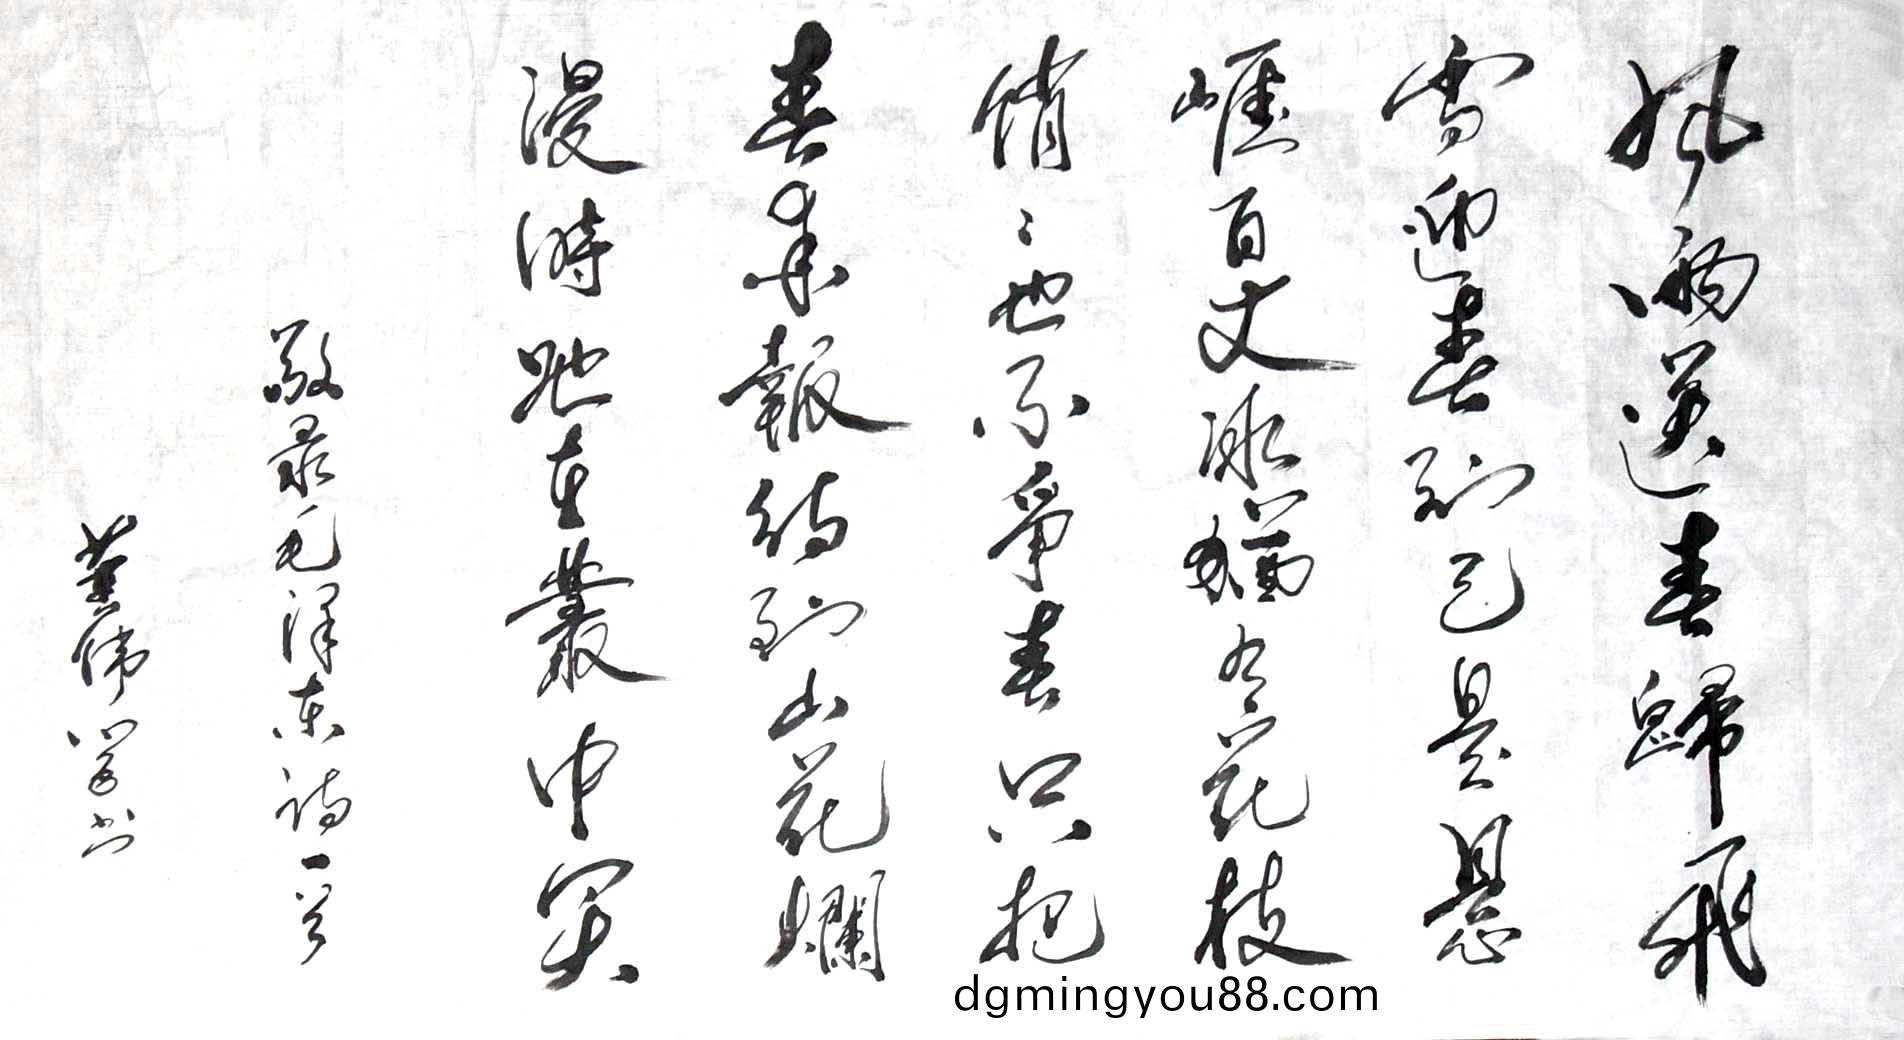 風雨送春歸飛
雪迎春到已是懸
崖百丈冰猶有花枝
俏々也不爭春只把
春來報待到山花爛
漫時她在叢中笑
敬录毛泽东詩一首
偉 学书
dgmingyou88.com